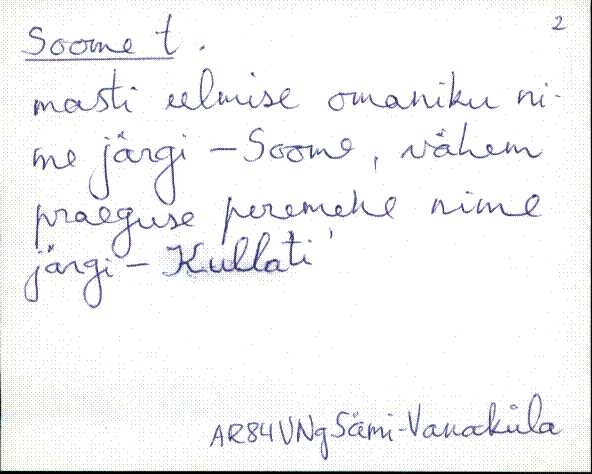 2
Soome t.
masti eelmise omaniku ni-
me järgi – Soome, vähem
praeguse peremehe nime
järgi – Kullati
AR84VNg Sämi-Vanaküla